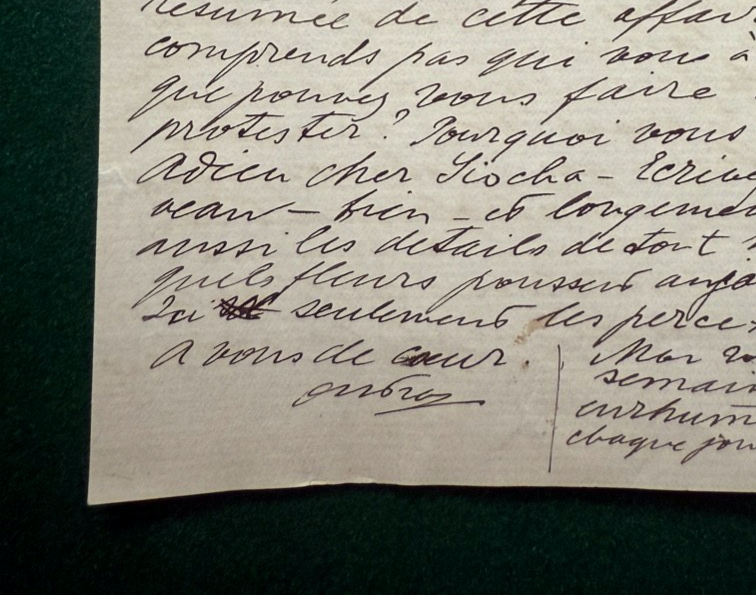 résumée de cette affai
comprends pas qui vous a
que pouvez vous faire
protester? Pourquoi vous
Adieu cher Liocha - Ecrive
veau - bien - et longeme
aussi les details de tout
quels fleurs poussent au
Ici seulement les perce
A vous de cœur.
Mar
semain
enrhum
chaque jou